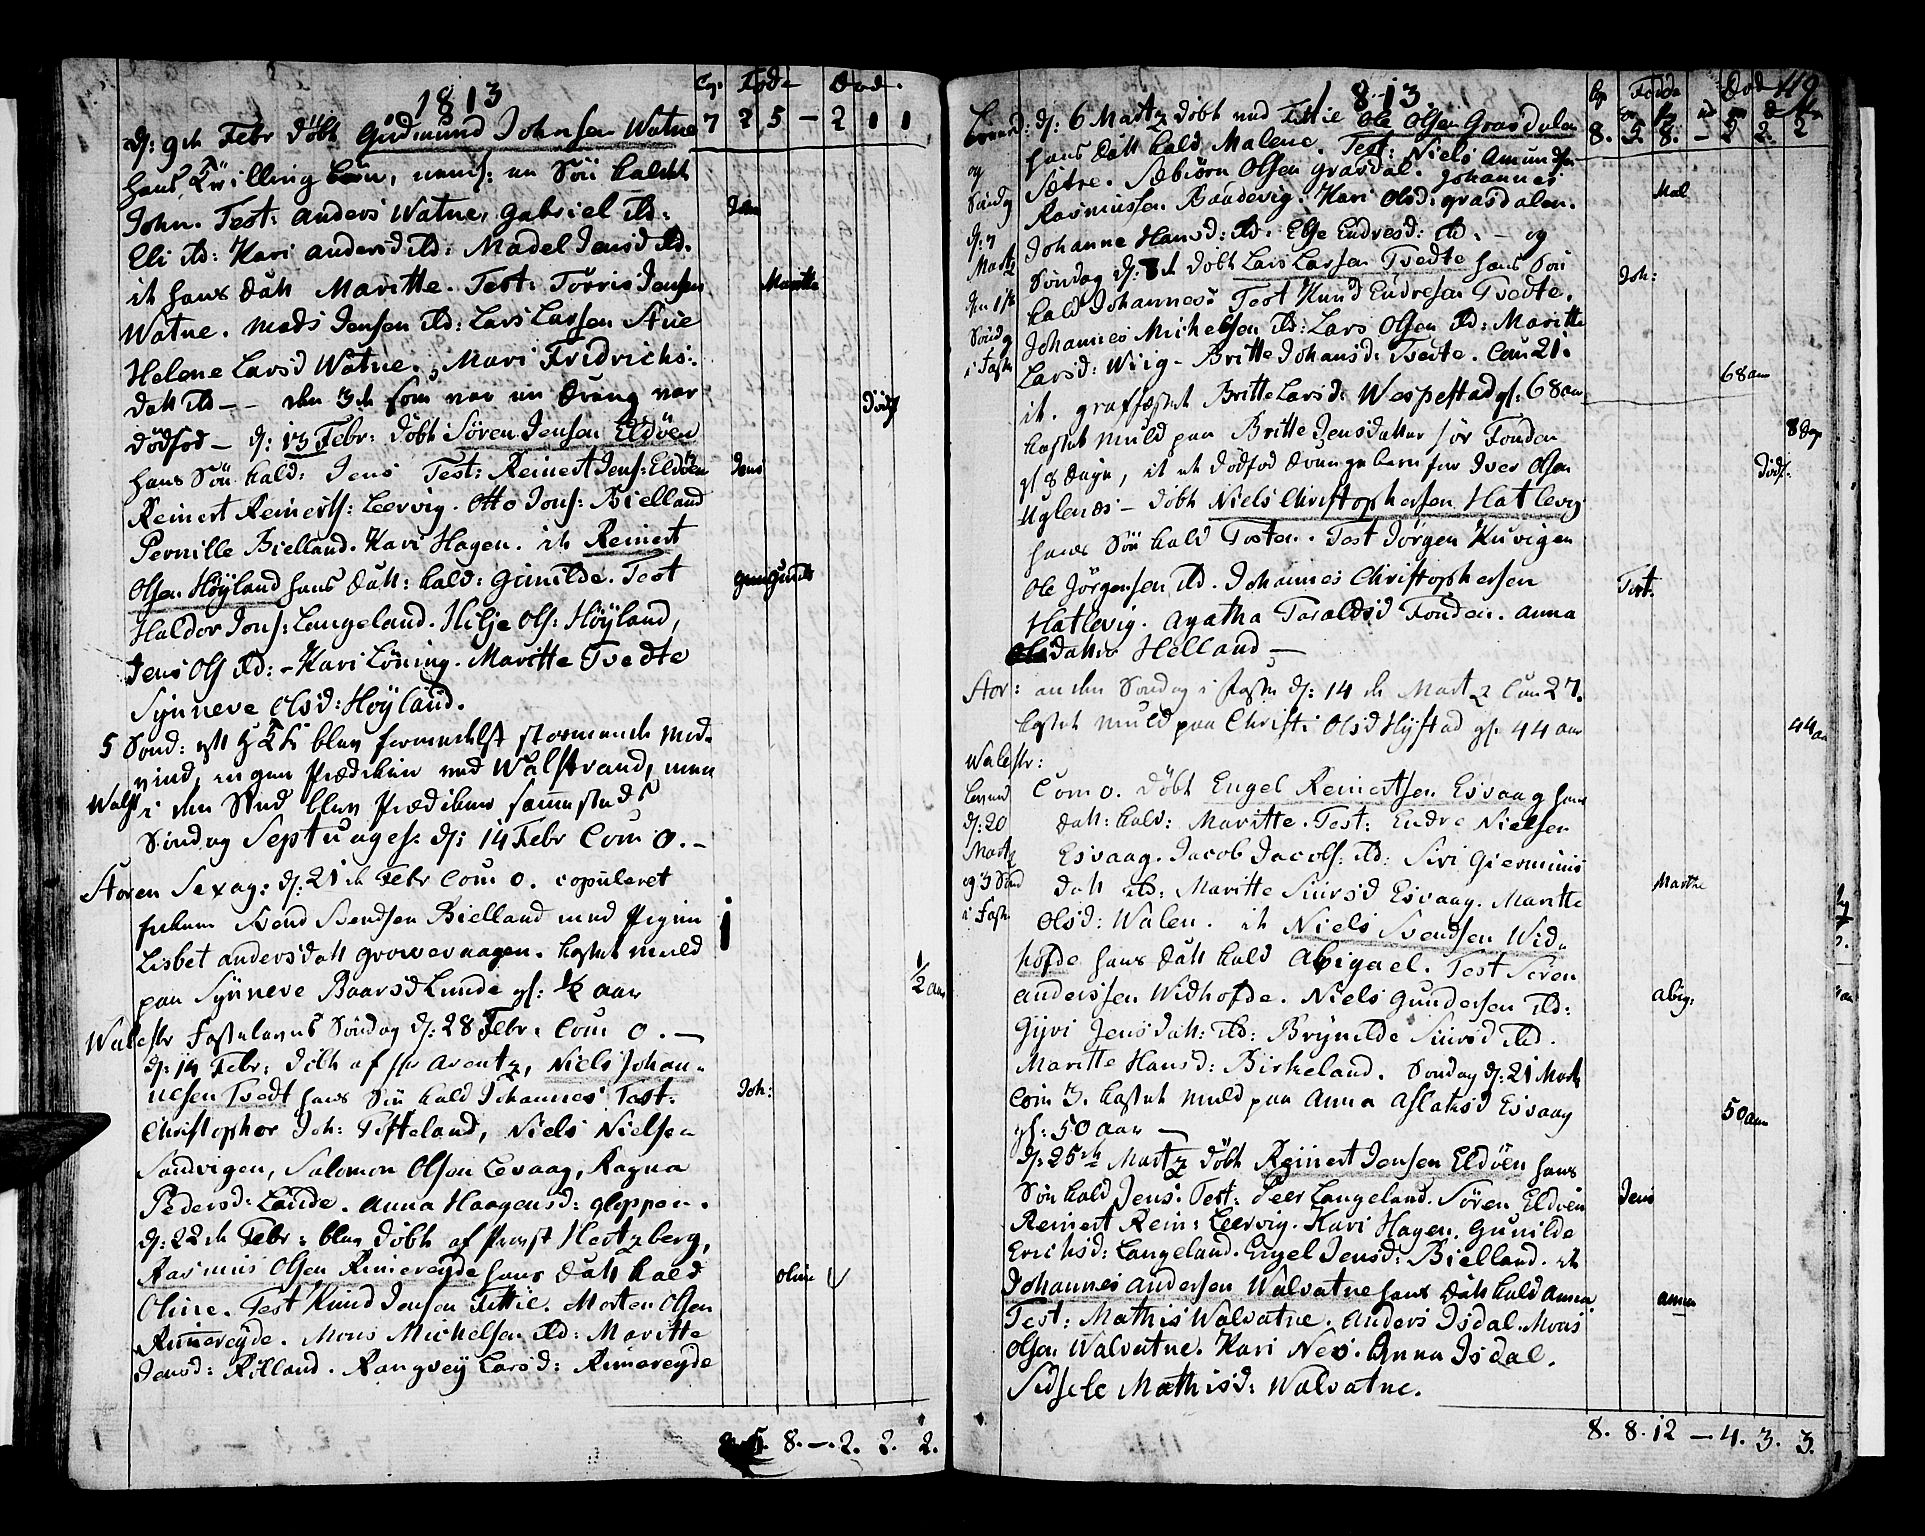 1813
Cop. Föde Död.
d: 9de Febr döbt Gudmund Johnsen Watne 7 2 5 - 2 1 1
hans Tvilling börn, nemf: en Sön kaldet
John. Test: Anders Watne, Gabriel ibd: John
Eli ibd: Kari Andersd ibd: Madel Jensd ibd.
it hans Datt Maritte. Test: Torris Jensen Maritte
Watne. Mads Jensen ibd: Lars Larsen Stue
Helene Larsd Watne. Mari Fridrichs:
datt ibd - den 3de som var en Dreng var dödf
dödfød - d: 13 Febr: döbt Sören Jensen Eldöen
hans Sön kald: Jens Test: Reinert Jens: Eldöen Jens
Reinert Reinerts: Leervig. Otto Jons: Bielland
Pernille Bielland. Kari Hagen. it Reinert
Olsen Höyland hans Datt: kald: Gunilde. Test Gunilde
Haldor Jons: Langeland. Hilje Ols: Höyland,
Jens Ols ibd: - Kari Löning. Maritte Tvedte
Synneve Olsd: Höyland.
5 Sönd: eft H 3 K blev formedelst stormende Mod-
vind, ingen Prædiken ved Walestrand, men
Walstr i den Sted blev Prædiken sammesteds
Söndag Septuages. d: 14 Febr Com 0. -
Storen Sexag: d: 21de Febr Com 0. copuleret
Enkem Bend Bendsen Bielland med Pigen 1
Lisbet Andersdatt Growevaagen. kastet muld
paa Synneve Baarsd Lunde gl: 1/2 aar 1/2 aar
Walestr Fastelavns Söndag d: 28 Febr: Com 0. -
d: 14 Febr: döbt af Hr Arentz, Niels Johan-
nesen Tvedt hans Sön kald Johannes Test: Joh:
Christopher Joh: Tifteland, Niels Nielsen
Sandvigen, Salomon Olsen Eevaag, Ragna
Pedersd: Lande. Anna Haagensd: Gloppen.
d: 22de Febr: blev döbt af Provst Hertzberg,
Rasmus Olsen Rimereyde hans Datt kald Oline
Oline. Test Knud Jensen Tittie. Morten Olsen
Rimereyde. Mons Michelsen ibd: Maritte
Jensd: Rölland. Rangvey Larsd: Rimereyde
5. 8. - 2. 2. 2.
1813
119
Cop Föde Död
Löverd: d: 6 Martz döbt ved Tittie Ole Olsen Grasdalen 8. 5 8. - 2 2. 2
og hans Datt kald Malene. Test: Niels Amundsen
Söndg Sætre. Sæbiørn Olsen Grasdal. Johannes Mal
Rasmussen Baadevig. Kari Olsd: Grasdalen.
d: 7 Johanne Hansd: ibd. Else Endresd: ibd. - og
Martz Söndag d: 7de döbt Lars Larsen Tvedte hans Sön Joh:
den 1ste kald Johannes. Test Knud Endresen Tvedte.
Söndg Johannes Michelsen ibd: Lars Olsen ibd: Maritte
i Faste Larsd: Wiig - Britte Johansd: Tvedte. Com 21.
it. graffæstet Britte Larsd: Wespestad gl: 68 aar 68 aar
kastet muld paa Britte Jensdatter sör Fonden 8 dage
gl 8 Dage, it et dödfød Drenge barn for Iver Olsen dödf.
Uglenæs - döbt Niels Christophersen Hatlevig
hans Sön kald Tosten. Test Jörgen Kuvigen
Ole Jörgensen ibd. Johannes Christophersen Tost.
Hatlevig. Agatha Taraldsd Fonden. Anna
Olsdatter Helland -
Stor: anden Söndag i Faste d: 14de Martz Com 27.
kastet muld paa Christi Olsd Hystad gl: 44 aar 44 aar
Walestr:
Löverd Com 0. döbt Engel Reinertsen Esvaag hans
d: 20 Datt: kald: Maritte. Test: Endre Nielsen
Martz Esvaag. Jacob Jacobs: ibd: Siri Giermunds
og 3 Sönd datt ibd: Maritte Siursd Esvaag. Maritte Maritte
i Faste Olsd: Walen. it Niels Svendsen Wid-
hofde hans Datt kald Abigael. Test Sören
Anderssen Widhofde. Niels Gundersen ibd: Abig:
Gyri Jensdatt: ibd: Brynilde Siursd ibd.
Maritte Hansd: Birkeland. Söndag d: 21 Martz
Com 3. kastet muld paa Anna Aslaksd Esvaag 50 aar
gl: 50 aar -
d: 25de Martz döbt Reinert Jensen Eldöen hans
Sön kald Jens. Test: Peer Langeland. Sören Eldöen Jens
Reinert Rein: Leervig. Kari Hagen. Gunilde
Erichsd: Langeland. Engel Jensd: Bielland. it
Johannes Andersen Walvatne hans Datt kald Anna Anna
Test: Mathis Walvatne. Anders Isdal. Mons
Olsen Walvatne. Kari Nes. Anna Isdal.
Sidsele Mathisd: Walvatne.
8. 8. 12 - 4. 3. 3.